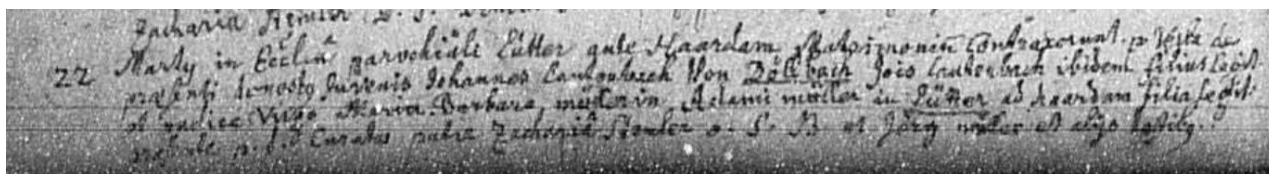 Zacharia Stemler O. S. B.
22 Marty in Ecclia parochiali Lütter ante Haardam Matrimoniu contraxerunt p Verba de
praesenti honestq Juvenis Johannes Lauterbach Von Döllbach Jois Lauterbach ibidem filius legit.
et pudica Virgo Maria Barbara müllerin Adami müller in Lütter ad haardam filia legit.
p. t. Curatus patre Zacharia Stemler o. S. B et Jörg müller et alijs testibq.